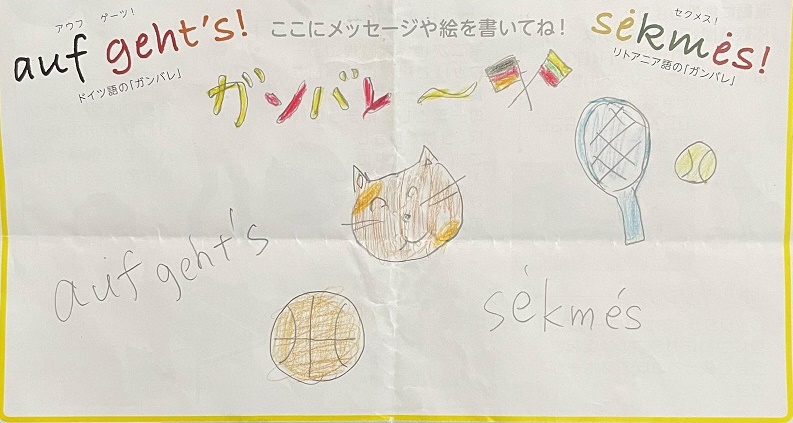 アウフ ゲーツ!
auf geht's!
ドイツ語の「ガンバレ」
ここにメッセージや絵を書いてね!
セクメス!
sėkmės!
リトアニア語の「ガンバレ」
ガンバレ〜
auf geht's
sėkmés